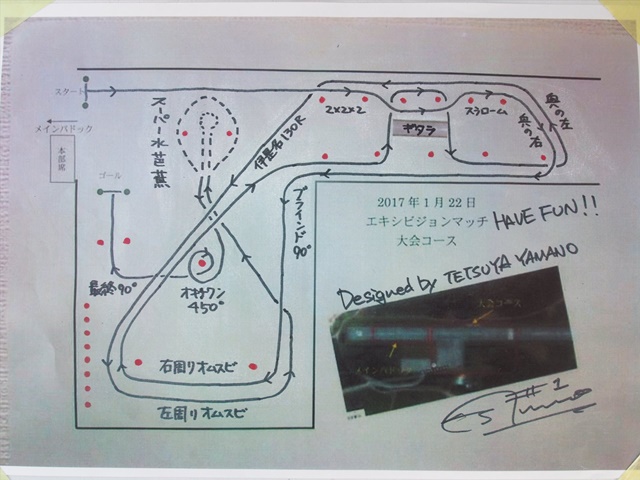 スタート
メインパドック
本部席
ゴール
スーパー水芭蕉
伊星名130R
2×2×2
ギタラ
スラローム
奥の左
奥の右
ブラインド90°
最終90°
オキナワン
450°
右回りオムスビ
左回りオムスビ
2017年1月22日
エキシビジョンマッチ
大会コース
HAVE FUN!!
Designed by TETSUYA YAMANO
大会コース
メインパドック
#1